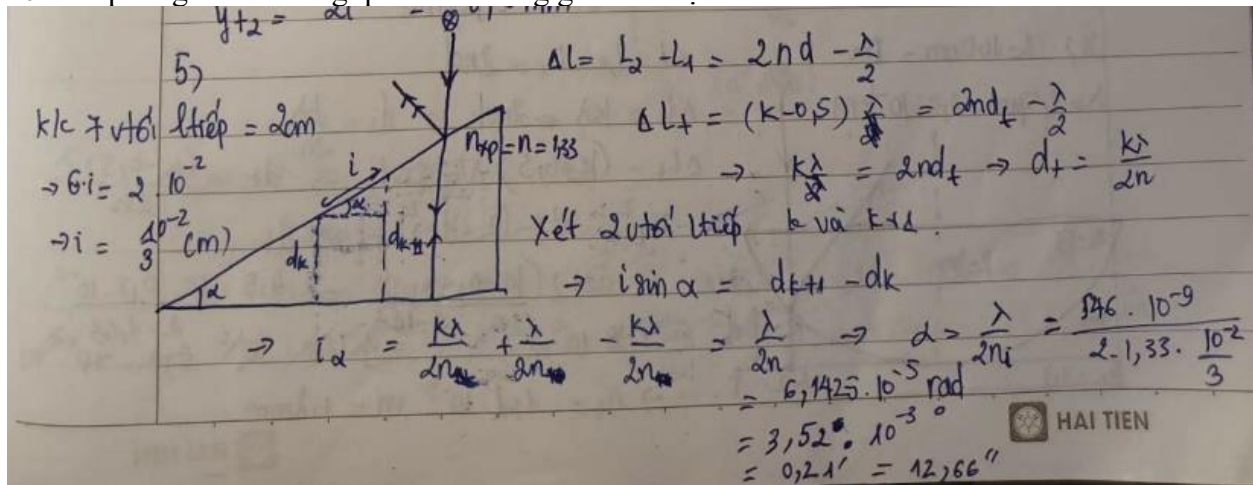 y_{t2} = 2i
5)
k/c 7 vtối ltiếp = 2cm
→ 6.i = 2.10^{-2}
→ i = \frac{10^{-2}}{3} (m)
i
α
d_k
d_{k+1}
α
n_{xp} = n = 1,33
Δl = L_2 - L_1 = 2nd - \frac{λ}{2}
ΔL_t = (k-0,5) λ = 2nd_t - \frac{λ}{2}
→ kλ = 2nd_t → d_t = \frac{kλ}{2n}
Xét 2 vtối ltiếp k và k+1.
→ i sin α = d_{k+1} - d_k
→ iα = \frac{kλ}{2n} + \frac{λ}{2n} - \frac{kλ}{2n} = \frac{λ}{2n} → α = \frac{λ}{2ni} = \frac{546.10^{-9}}{2.1,33.\frac{10^{-2}}{3}}
= 6,1425.10^{-5} rad
= 3,52.10^{-3} °
= 0,21' = 12,66"
HAI TIEN